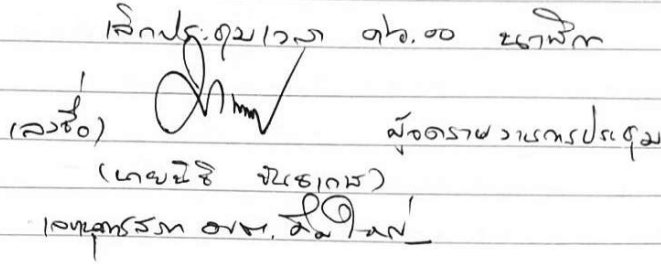 เลิกประชุมเวลา ๑๖.๐๐ นาฬิกา
(ลงชื่อ) ผู้จดรายงานการประชุม
(นายนิธิ
เลขานุการสภา อบต.